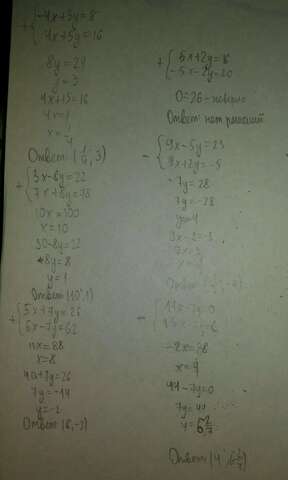 + { -4x+3y=8
4x+5y=16
8y=24
y=3
4x+15=16
4x=1
x=1/4
Ответ: (1/4, 3)
+ { 3x-8y=22
7x+8y=78
10x=100
x=10
30-8y=22
8y=8
y=1
Ответ (10; 1)
+ { 5x+7y=26
6x-7y=62
11x=88
x=8
40+7y=26
7y=-14
y=-2
Ответ: (8, -2)
+ { 5x+2y=6
-5x-2y=20
0=26-неверно
Ответ: нет решений
- { 9x-5y=23
9x+2y=-5
-7y=28
7y=-28
Ответ
- { 11x-7y=0
-2x=-8
x=4
44-7y=0
7y=44
y=6 2/7
Ответ (4; 6 2/7)